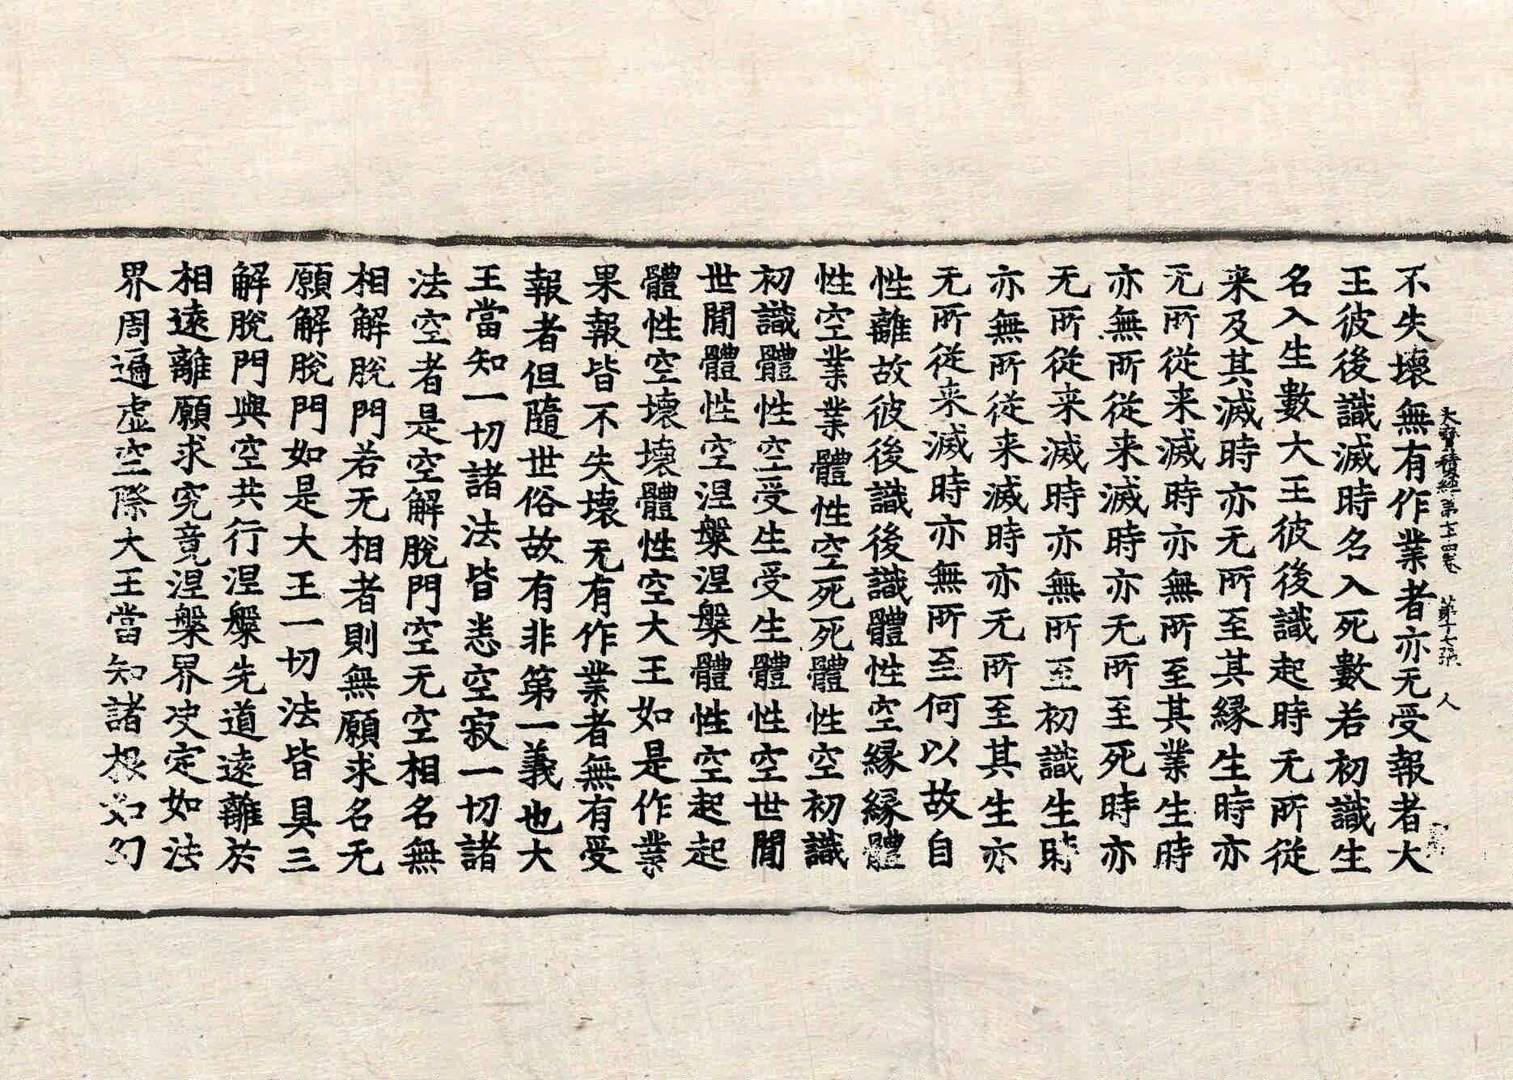 大寶積經第七十四卷 第十七張 人
不失壞無有作業者亦无受報者大
王彼後識滅時名入死數若初識生
名入生數大王彼後識起時无所從
来及其滅時亦无所至其縁生時亦
无所從来滅時亦無所至其業生時
亦無所從来滅時亦无所至死時亦
无所從来滅時亦無所至初識生時
亦無所從来滅時亦无所至其生亦
无所從来滅時亦無所至何以故自
性離故彼後識後識體性空縁縁體
性空業業體性空死死體性空初識
初識體性空受生受生體性空世閒
世閒體性空涅槃涅槃體性空起起
體性空壞壞體性空大王如是作業
果報皆不失壞无有作業者無有受
報者但隨世俗故有非第一義也大
王當知一切諸法皆悉空寂一切諸
法空者是空解脫門空无空相名無
相解脫門若无相者則無願求名无
願解脫門如是大王一切法皆具三
解脫門與空共行涅槃先道遠離於
相遠離願求究竟涅槃界决定如法
界周遍虛空際大王當知諸根如幻